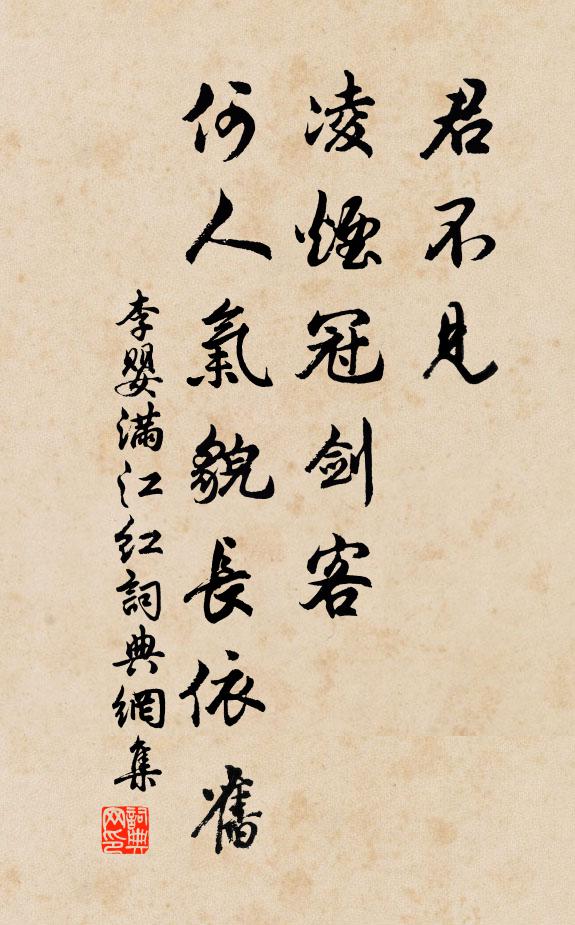 君不見
凌煙冠劍客
何人氣貌長依舊
李嬰滿江紅詞典網集
詞典網印